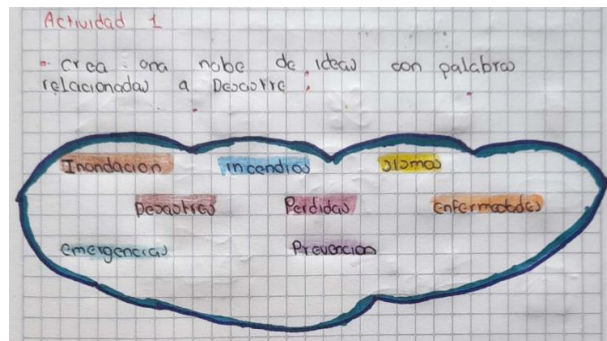 Actividad 1
crea una nube de ideas con palabras
relacionadas a Desastre.
Inondacion incendios sismos
Desastres Perdidas enfermedades
emergencias Prevencion